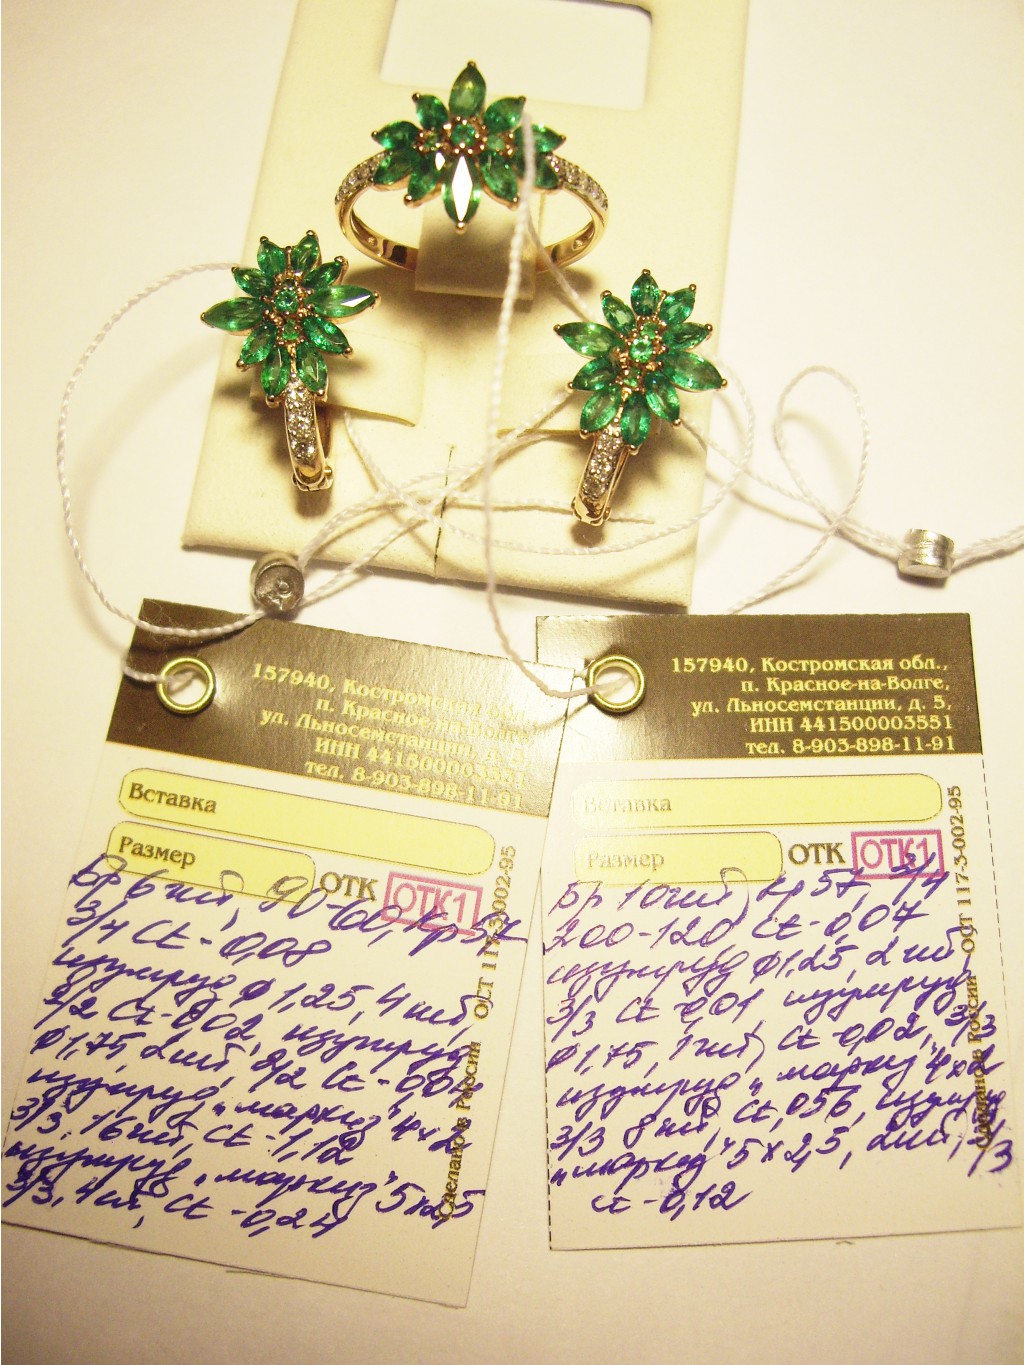 157940, Костромская обл.,
п. Красное-на-Волге,
ул. Льносемстанции, д. 5,
ИНН 441500003551
тел. 8-903-898-11-91
Вставка
Размер
ОТК
ОТК1
ОСТ 117-3-002-95
Сделано в России
Бр 6 шт, 90-60, Кр 57
3/4 Ct - 0,08
изумруд Ф 1,25, 4 шт,
3/2 Ct-0,02, изумруд
Ф1,75, 2шт, 2/2 Ct - 0,04
изумруд, "маркиз" 4x2
3/3, 16шт, Ct - 1,12
изумруд "маркиз" 5x2,5
3/3, 4шт, Ct - 0,24
157940, Костромская обл.,
п. Красное-на-Волге,
ул. Льносемстанции, д. 5,
ИНН 441500003551
тел. 8-903-898-11-91
Вставка
Размер
ОТК
ОТК1
ОСТ 117-3-002-95
Сделано в России
Бр 10шт, Кр 57, 3/4
200-120 Ct - 0,07
изумруд Ф1,25, 2 шт
3/3 Ct - 0,01, изумруд
Ф1,75, 1 шт, Ct - 0,02, 3/3
изумруд "маркиз" 4x2
3/3 8шт, Ct, 056, изумруд
"маркиз" 5x2,5, 2шт, 3/3
Ct - 0,12